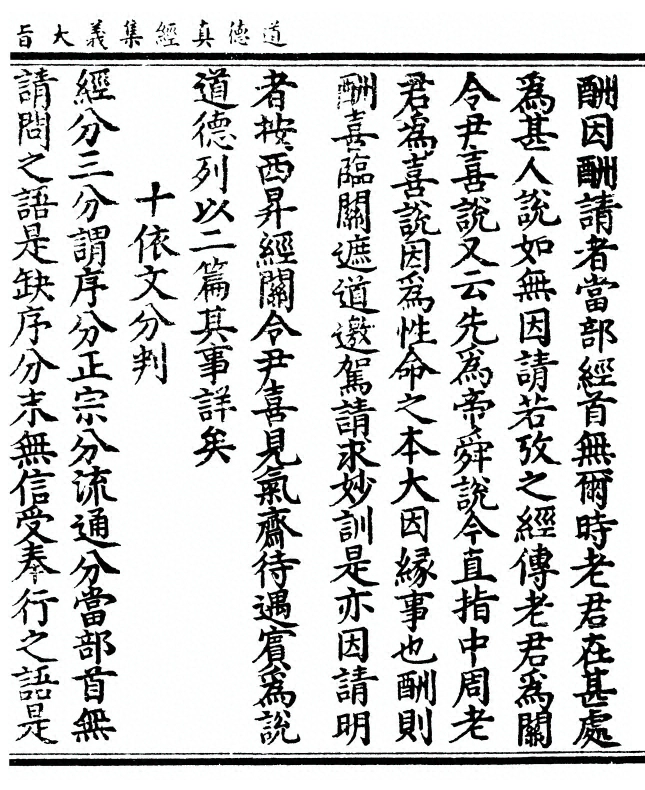 道德真經集義大旨
酬因酬請者當部經首無爾時老君在甚處
爲甚人說如無因請若攷之經傳老君爲關
令尹喜說又云先爲帝舜說今直指中周老
君爲喜說因爲性命之本大因縁事也酬則
酬喜臨關遮道邀駕請求妙訓是亦因請明
者按西昇經關令尹喜見氣齋待遇賓爲說
道德列以二篇其事詳矣
十依文分判
經分三分謂序分正宗分流通分當部首無
請問之語是缺序分末無信受奉行之語是